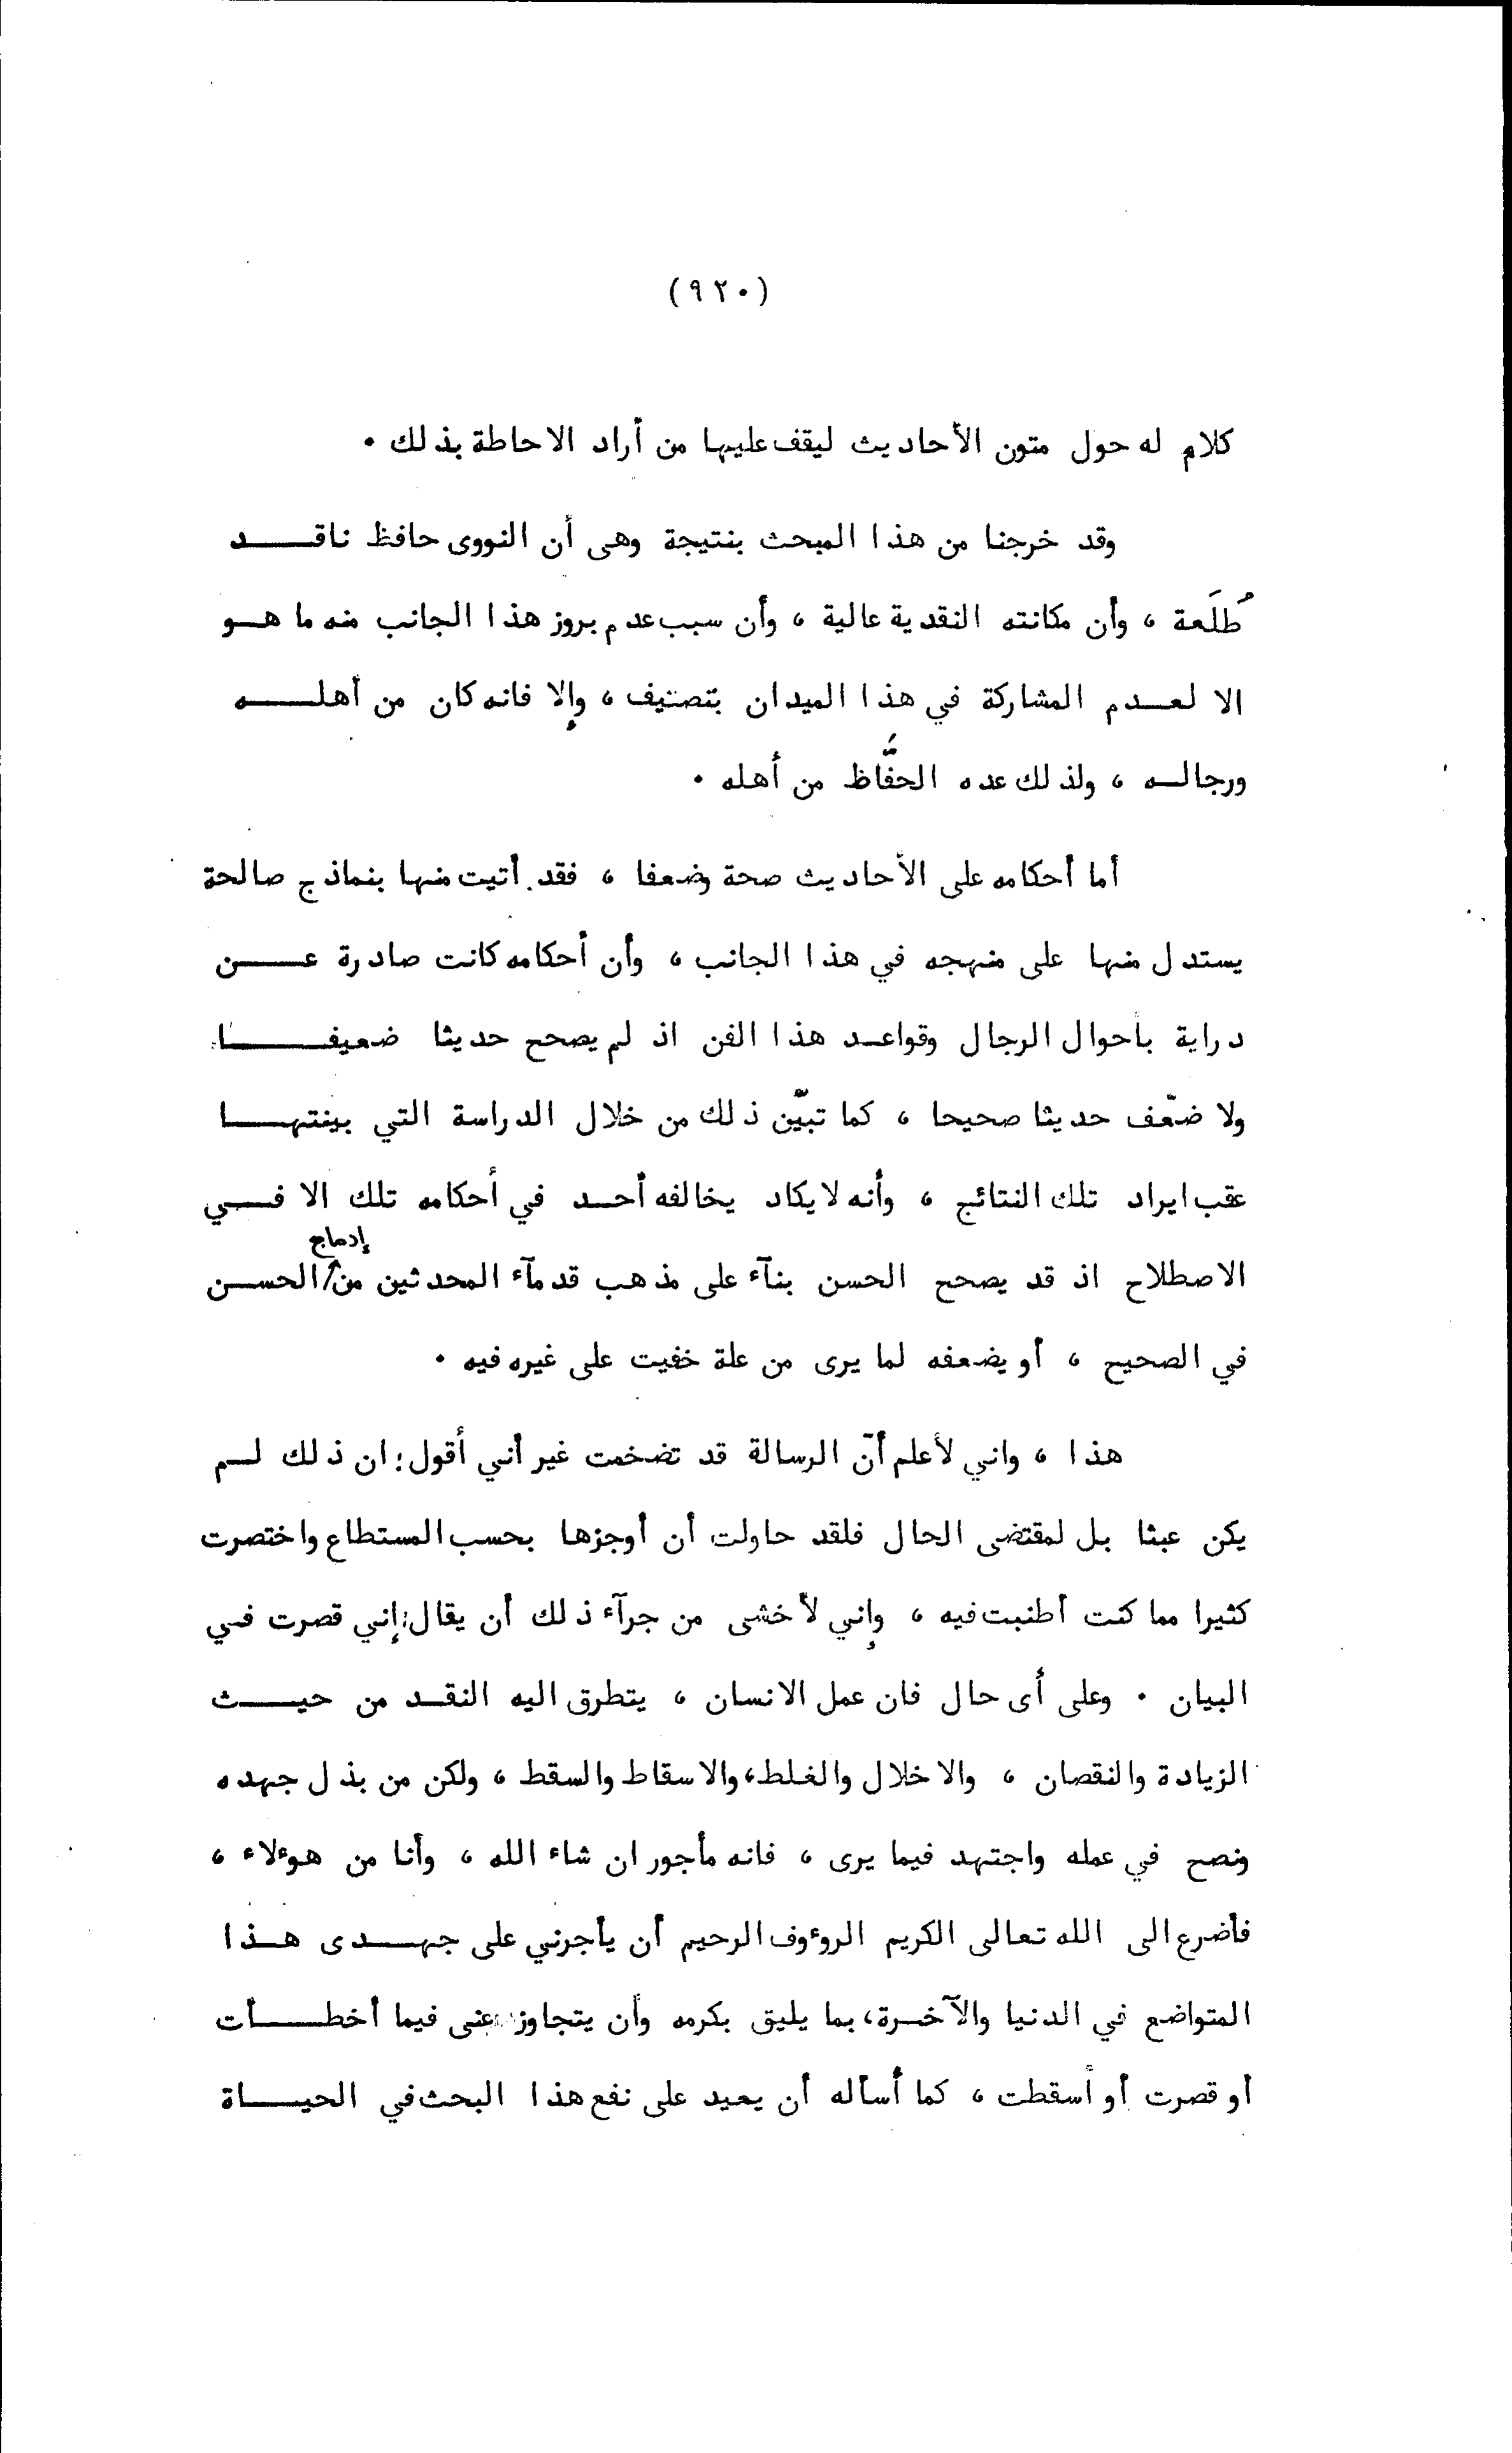 (٩٢٠)
كلام له حول متون الأحاديث ليقف عليها من أراد الاحاطة بذلك .
وقد خرجنا من هذا المبحث بنتيجة وهى أن النووى حافظ ناقـــد
طُلَعة ، وأن مكانته النقدية عالية ، وأن سبب عدم بروز هذا الجانب منه ما هـو
الا لعـدم المشاركة في هذا الميدان بتصنيف ، وإلا فانه كان من أهلـــه
ورجالـه ، ولذلك عده الحفَّاظ من أهله .
أما أحكامه على الأحاديث صحة وضعفا ، فقد أتيت منها بنماذج صالحة
يستدل منها على منهجه في هذا الجانب ، وأن أحكامه كانت صادرة عـــن
دراية بأحوال الرجال وقواعـد هذا الفن اذ لم يصحح حديثا ضعيفـــا
ولا ضعّف حديثا صحيحا ، كما تبيّن ذلك من خلال الدراسة التي بينتهـــا
عقب ايراد تلك النتائج ، وأنه لا يكاد يخالفه أحـد في أحكامه تلك الا فـــي
الاصطلاح اذ قد يصحح الحسن بنآء على مذهب قدمآء المحدثين من إدماج الحسـن
في الصحيح ، أو يضعفه لما يرى من علة خفيت على غيره فيه .
هذا ، واني لأعلم أنّ الرسالة قد تضخمت غير أني أقول : ان ذلك لـم
يكن عبثا بل لمقتضى الحال فلقد حاولت أن أوجزها بحسب المستطاع واختصرت
كثيرا مما كنت أطنبت فيه ، وإني لأخشى من جرآء ذلك أن يقال : إني قصرت في
البيان . وعلى أى حال فان عمل الانسان ، يتطرق اليه النقـد من حيــث
الزيادة والنقصان ، والاخلال والغلط ، والاسقاط والسقط ، ولكن من بذل جهده
ونصح في عمله واجتهد فيما يرى ، فانه مأجور ان شاء الله ، وأنا من هوءلاء ،
فأضرع الى الله تعالى الكريم الروءوف الرحيم أن يأجرني على جهــدى هـذا
المتواضع في الدنيا والآخـرة ، بما يليق بكرمه وأن يتجاوز عنى فيما أخطــأت
أو قصرت أو أسقطت ، كما أسأله أن يعيد على نفع هذا البحث في الحيـــاة